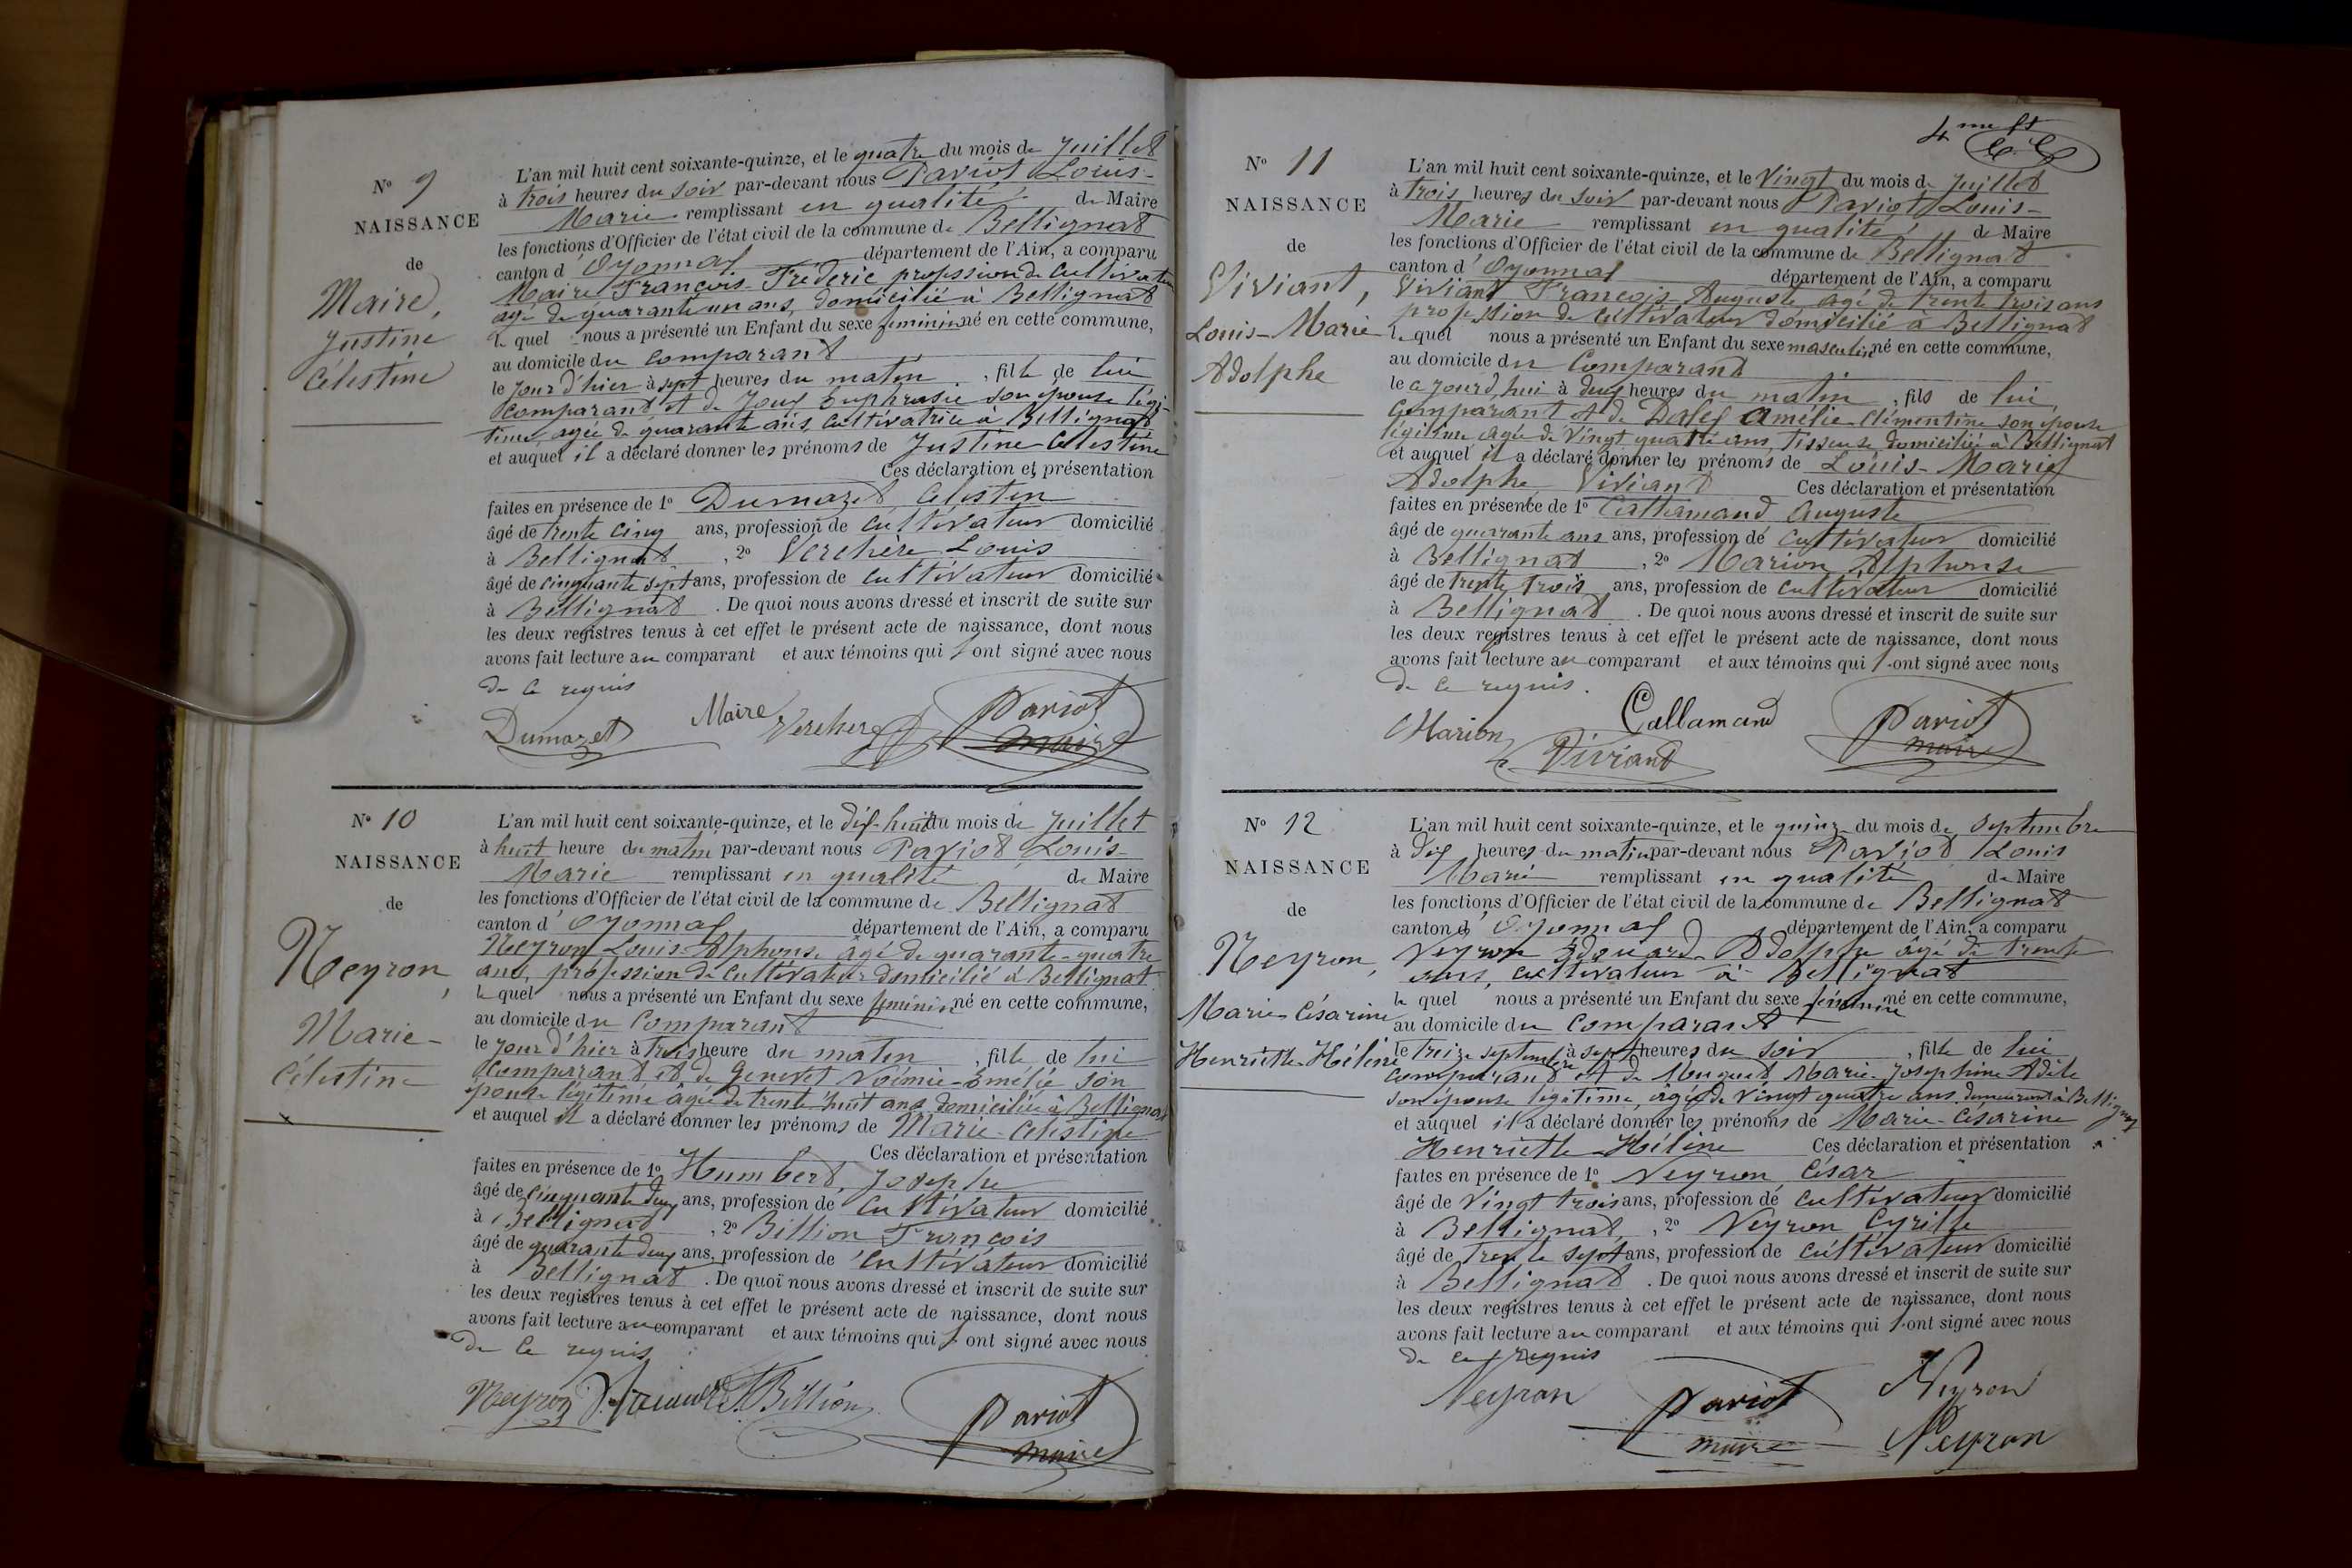 N° 9
NAISSANCE
de
Maire,
Justine
Célestine
L'an mil huit cent soixante-quinze, et le quatre du mois de Juillet
à trois heures du soir par-devant nous Pariot Louis-
Marie remplissant en qualité de Maire
les fonctions d'Officier de l'état civil de la commune de Bellignat
canton d'Oyonnax département de l'Ain, a comparu
Maire François-Frédéric profession de cultivateur
agé de quarante un ans, domicilié à Bellignat
le quel nous a présenté un Enfant du sexe feminin né en cette commune,
au domicile du comparant
le jour d'hier à sept heures du matin, fille de lui
comparant et de Joux Euphrasie son épouse légi-
time, agée de quarante ans, cultivatrice à Bellignat
et auquel il a déclaré donner les prénoms de Justine Célestine
Ces déclaration et présentation
faites en présence de 1° Dumazet Célestin
âgé de trente cinq ans, profession de cultivateur domicilié
à Bellignat, 2° Verchère Louis
âgé de cinquante sept ans, profession de cultivateur domicilié
à Bellignat. De quoi nous avons dressé et inscrit de suite sur
les deux registres tenus à cet effet le présent acte de naissance, dont nous
avons fait lecture au comparant et aux témoins qui l'ont signé avec nous
de ce requis
Dumazet Maire Verchere Pariot
maire
N° 10
NAISSANCE
de
Neyron,
Marie-
Célestine
L'an mil huit cent soixante-quinze, et le dix-huit du mois de Juillet
à huit heure du matin par-devant nous Pariot Louis-
Marie remplissant en qualité de Maire
les fonctions d'Officier de l'état civil de la commune de Bellignat
canton d'Oyonnax département de l'Ain, a comparu
Neyron Louis-Alphonse âgé de quarante-quatre
ans, profession de cultivateur domicilié à Bellignat
le quel nous a présenté un Enfant du sexe feminin né en cette commune,
au domicile du Comparant
le jour d'hier à trois heure du matin, fille de lui
Comparant et de Genevet Noémie-Emélie son
épouse légitime âgée de trente huit ans domiciliée à Bellignat
et auquel il a déclaré donner les prénoms de Marie-Célestine
Ces déclaration et présentation
faites en présence de 1° Humbert, Josephe
âgé de cinquante deux ans, profession de cultivateur domicilié
à Bellignat, 2° Billion François
âgé de quarante deux ans, profession de cultivateur domicilié
à Bellignat. De quoi nous avons dressé et inscrit de suite sur
les deux registres tenus à cet effet le présent acte de naissance, dont nous
avons fait lecture au comparant et aux témoins qui l'ont signé avec nous
de ce requis
Neyron F. Billion Pariot
maire
4me ft
N° 11
NAISSANCE
de
Viviant,
Louis-Marie
Adolphe
L'an mil huit cent soixante-quinze, et le Vingt du mois de Juillet
à trois heures du soir par-devant nous Pariot Louis-
Marie remplissant en qualité de Maire
les fonctions d'Officier de l'état civil de la commune de Bellignat
canton d'Oyonnax département de l'Ain, a comparu
Viviant François-Auguste agé de trente trois ans
profession de cultivateur domicilié à Bellignat
le quel nous a présenté un Enfant du sexe masculin né en cette commune,
au domicile du Comparant
le a jourd,hui à deux heures du matin, fils de lui
Comparant et de Dalex Amélie-Clémentine son épouse
légitime agée de vingt quatre ans, tisseuse domiciliée à Bellignat
et auquel il a déclaré donner les prénoms de Louis-Marie
Adolphe Viviant Ces déclaration et présentation
faites en présence de 1° Callamand Auguste
âgé de quarante ans ans, profession de cultivateur domicilié
à Bellignat, 2° Marion Alphonse
âgé de trente trois ans, profession de cultivateur domicilié
à Bellignat. De quoi nous avons dressé et inscrit de suite sur
les deux registres tenus à cet effet le présent acte de naissance, dont nous
avons fait lecture au comparant et aux témoins qui l'ont signé avec nous
de ce requis.
Marion Callamand Pariot
Viviand maire
N° 12
NAISSANCE
de
Neyron,
Marie-Césarine
Henriette-Hélène
L'an mil huit cent soixante-quinze, et le quinze du mois de Septembre
à dix heures du matin par-devant nous Pariot Louis
Marie remplissant en qualité de Maire
les fonctions d'Officier de l'état civil de la commune de Bellignat
canton d'Oyonnax département de l'Ain, a comparu
Neyron Edouard-Adolphe âgé de trente
ans, cultivateur à Bellignat
le quel nous a présenté un Enfant du sexe féminine né en cette commune,
au domicile du comparant
le treize septembre à sept heures du soir, fille de lui
comparant et de Muguet Marie-Josephine Adèle
son épouse légitime, âgée de vingt quatre ans demeurant à Bellignat
et auquel il a déclaré donner les prénoms de Marie-Césarine
Henriette-Hélène Ces déclaration et présentation
faites en présence de 1° Neyron César
âgé de Vingt trois ans, profession de cultivateur domicilié
à Bellignat, 2° Neyron Cyrille
âgé de trente sept ans, profession de cultivateur domicilié
à Bellignat. De quoi nous avons dressé et inscrit de suite sur
les deux registres tenus à cet effet le présent acte de naissance, dont nous
avons fait lecture au comparant et aux témoins qui l'ont signé avec nous
de ce requis
Neyron Pariot Neyron
maire Neyron